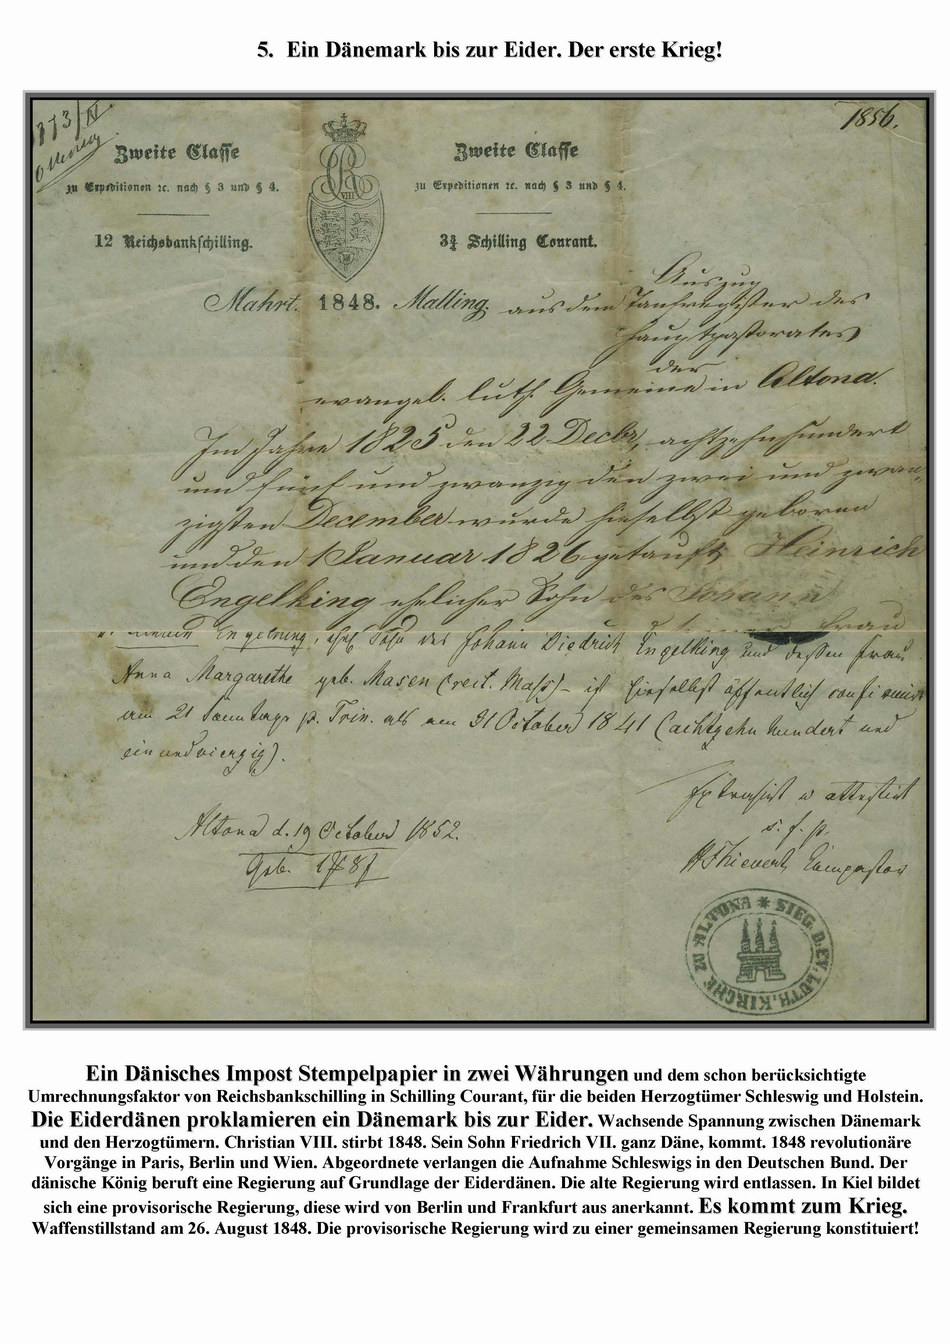 5. Ein Dänemark bis zur Eider. Der erste Krieg!
1856.
Zweite Classe
zu Expeditionen ꝛc. nach § 3 und § 4.
12 Reichsbankschilling.
VIII
Zweite Classe
zu Expeditionen ꝛc. nach § 3 und § 4.
3¾ Schilling Courant.
Mahrt. 1848. Malling.
Auszug
aus dem Taufregister des
Hauptpastorates
der
evangel. luth. Gemeine in Altona.
Im Jahre 1825 den 22 Decbr, achtzehnhundert
und fünf und zwanzig den zwei und zwan-
zigsten December wurde hieselbst geboren
und den 1 Januar 1826 getauft, Heinrich
Engelking ehelicher Sohn des Johann
Frau
Engelking, ehel. Sohn des Johann Diedrich Engelking und dessen Frau
Anna Margarethe geb. Masen (rect. Mahs) – ist hieselbst öffentlich confirmirt
am 21 Sonntage p. Trin. als am 31 October 1841 (achtzehn hundert und
ein und vierzig).
Extrahirt u attestirt
Altona d. 19 October 1852.
s. f. p.
Geb.
SIEG. D. EV. LUTH. KIRCHE ZU ALTONA
Ein Dänisches Impost Stempelpapier in zwei Währungen und dem schon berücksichtigte
Umrechnungsfaktor von Reichsbankschilling in Schilling Courant, für die beiden Herzogtümer Schleswig und Holstein.
Die Eiderdänen proklamieren ein Dänemark bis zur Eider. Wachsende Spannung zwischen Dänemark
und den Herzogtümern. Christian VIII. stirbt 1848. Sein Sohn Friedrich VII. ganz Däne, kommt. 1848 revolutionäre
Vorgänge in Paris, Berlin und Wien. Abgeordnete verlangen die Aufnahme Schleswigs in den Deutschen Bund. Der
dänische König beruft eine Regierung auf Grundlage der Eiderdänen. Die alte Regierung wird entlassen. In Kiel bildet
sich eine provisorische Regierung, diese wird von Berlin und Frankfurt aus anerkannt. Es kommt zum Krieg.
Waffenstillstand am 26. August 1848. Die provisorische Regierung wird zu einer gemeinsamen Regierung konstituiert!